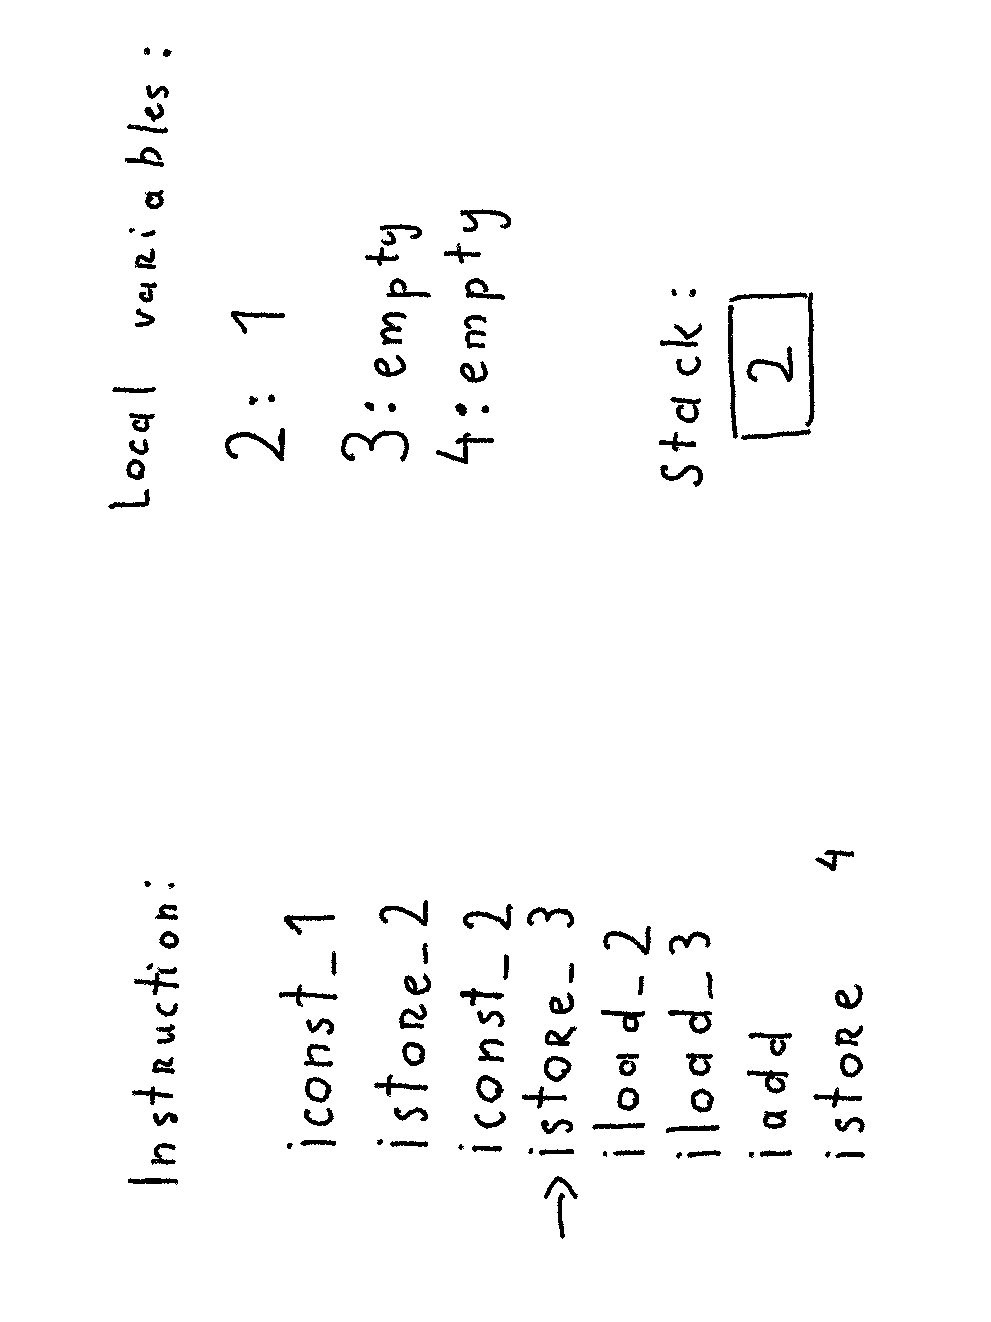 Instruction:
iconst_1
istore_2
iconst_2
→istore_3
iload_2
iload_3
iadd
istore 4
Local variables:
2: 1
3: empty
4: empty
Stack:
2